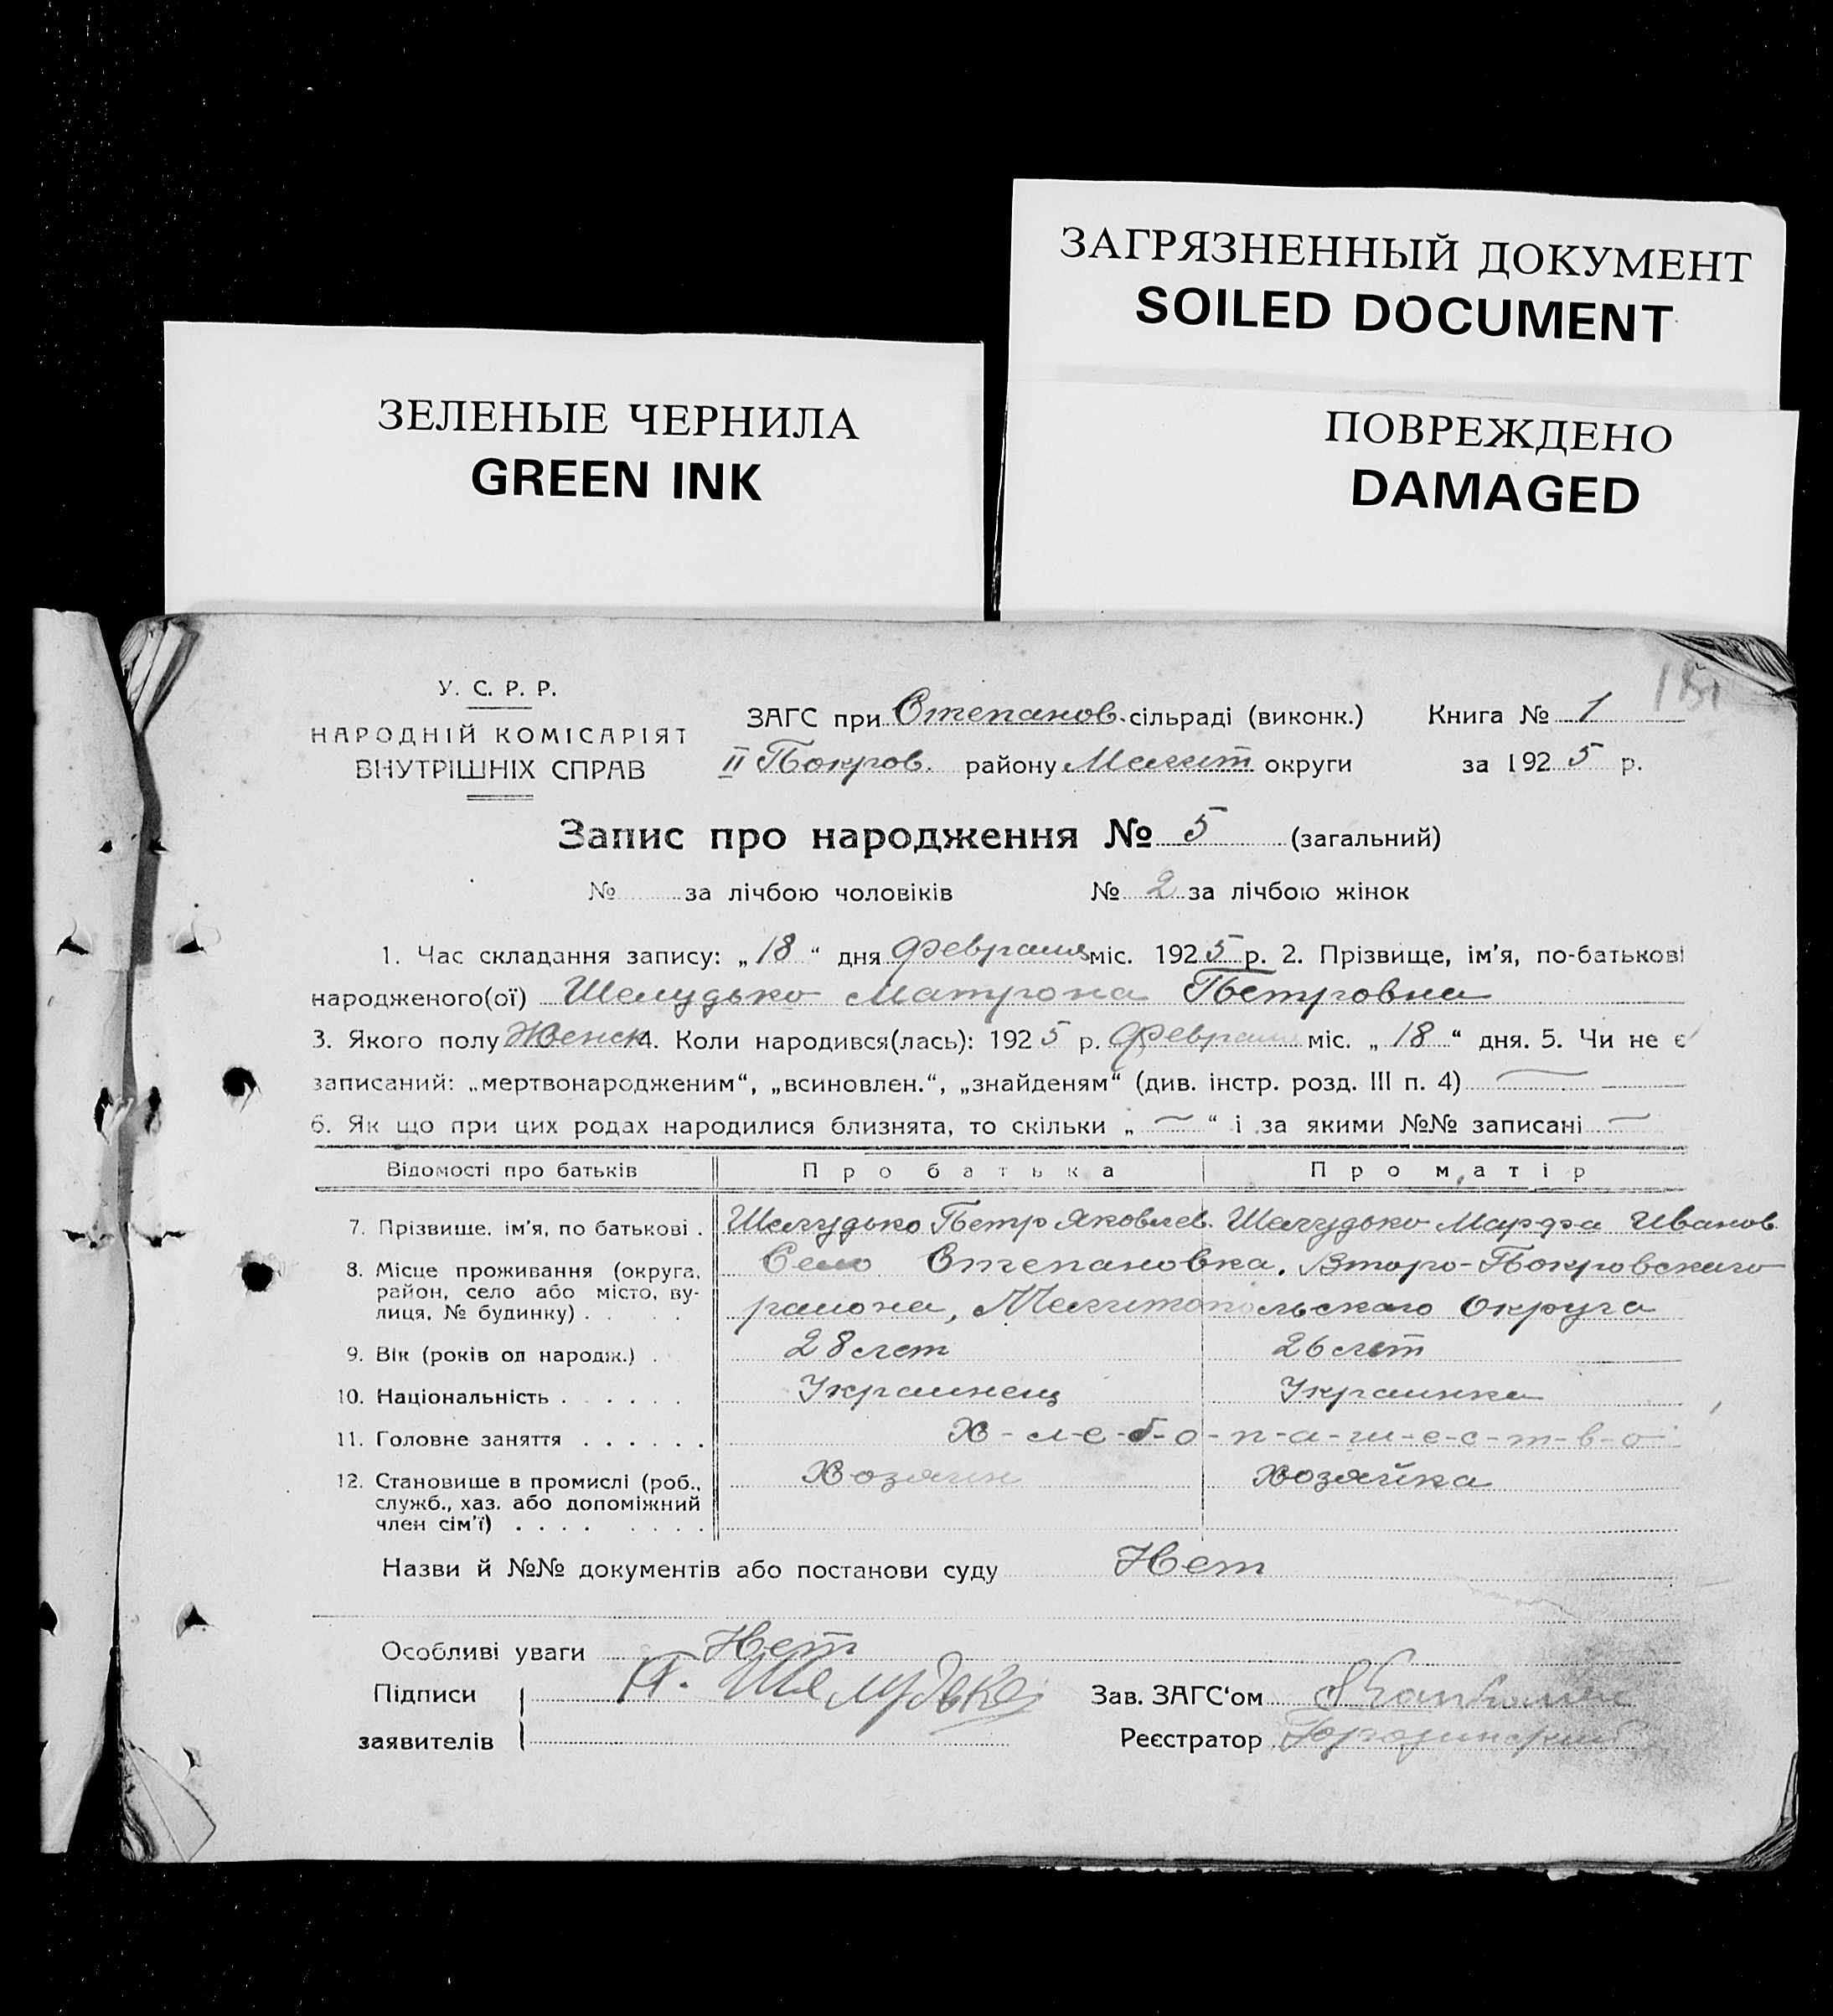 ЗАГРЯЗНЕННЫЙ ДОКУМЕНТ
SOILED DOCUMENT
ЗЕЛЕНЫЕ ЧЕРНИЛА
GREEN INK
ПОВРЕЖДЕНО
DAMAGED
У. С. Р. Р.
НАРОДНІЙ КОМІСАРІЯТ
ВНУТРІШНІХ СПРАВ
ЗАГС при Степанов. сільраді (виконк.) Книга № 1
II Покров. району Мелит округи за 1925 р.
Запис про народження № 5 (загальний)
№ за лічбою чоловіків № 2 за лічбою жінок
1. Час складання запису: „18“ дня Февраля міс. 1925 р. 2. Прізвище, ім'я, по-батькові
народженого(ої) Шелудько Матрона Петровна
3. Якого полу Женск 4. Коли народився(лась): 1925 р. Февраля міс. „18“ дня. 5. Чи не є
записаний: „мертвонародженим“, „всиновлен.“, „знайденям“ (див. інстр. розд. III п. 4) —
6. Як що при цих родах народилися близнята, то скільки „—“ і за якими №№ записані —
Відомості про батьків Про батька Про матір
7. Прізвище, ім'я, по батькові . Шелудько Петр Яковлев. Шелудько Марфа Иванов
8. Місце проживання (округа, район, село або місто, вулиця, № будинку) . . Село Степановка, Второ-Покровского
района, Мелитопольскаго Округа
9. Вік (років од народж.) . 28 лет 26 лет
10. Національність . . . . . . Украинец Украинка
11. Головне заняття . . . . . . Х-л-е-б-о-п-а-ш-е-с-т-в-о
12. Становище в промислі (роб., служб., хаз. або допоміжний член сім'ї) . . . . Хозяин Хозяйка
Назви й №№ документів або постанови суду Нет
Особливі уваги Нет
Підписи П. Шелудько Зав. ЗАГС'ом
заявителів Реєстратор